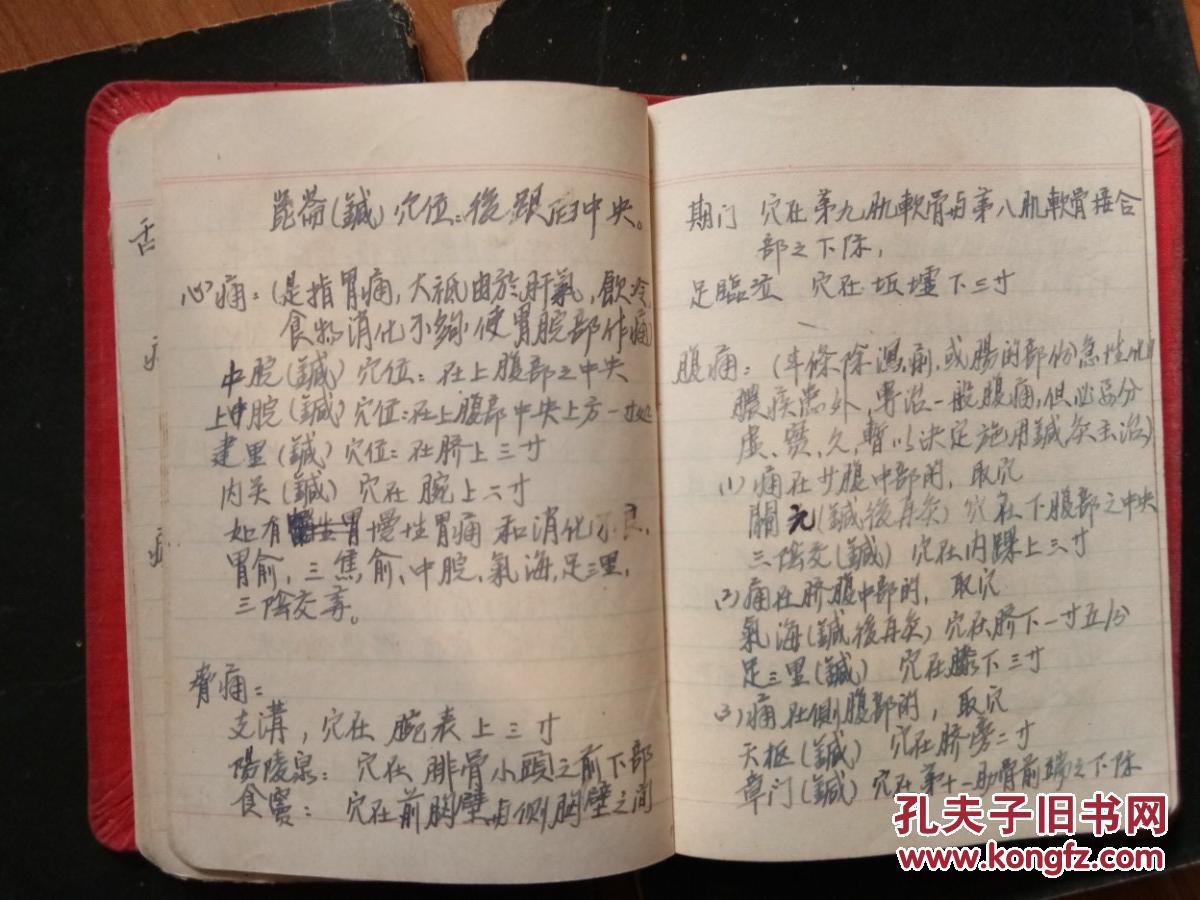 崑崙(鍼) 穴位：後跟[骨]中央。
心痛：(是指胃痛，大祗由於肝氣，飲冷，
食物消化不夠，使胃脘部作痛)
中脘(鍼) 穴位：在上腹部之中央
上脘(鍼) 穴位：在上腹部中央上方一寸处
建里(鍼) 穴位：在脐上三寸
内关(鍼) 穴在 腕上二寸
如有慢性胃痛和消化不良，
胃俞，三焦俞、中脘、氣海，足三里，
三陰交等。
脅痛：
支溝，穴在 腕表上三寸
陽陵泉：穴在 腓骨小頭之前下部
食竇：穴在前胸壁与侧胸壁之间
期门 穴在第九肋軟骨与第八肋軟骨接合
部之下际，
足臨泣 穴在坵墟下三寸
腹痛：(本條除瀉痢，或腸的部份急性化
膿疾患外，專治一般腹痛，但必區分
虚、實、久、暫以决定施用鍼灸主治)
(1) 痛在少腹中部的，取穴
關元(鍼後再灸) 穴在下腹部之中央
三陰交(鍼) 穴在内踝上三寸
(2) 痛在脐腹中部的，取穴
氣海(鍼後再灸) 穴在脐下一寸五分
足三里(鍼) 穴在膝下三寸
(3) 痛在侧腹部的，取穴
天枢(鍼) 穴在脐旁二寸
章门(鍼) 穴在第十一肋骨前端之下际
舌
孔夫子旧书网
www.kongfz.com